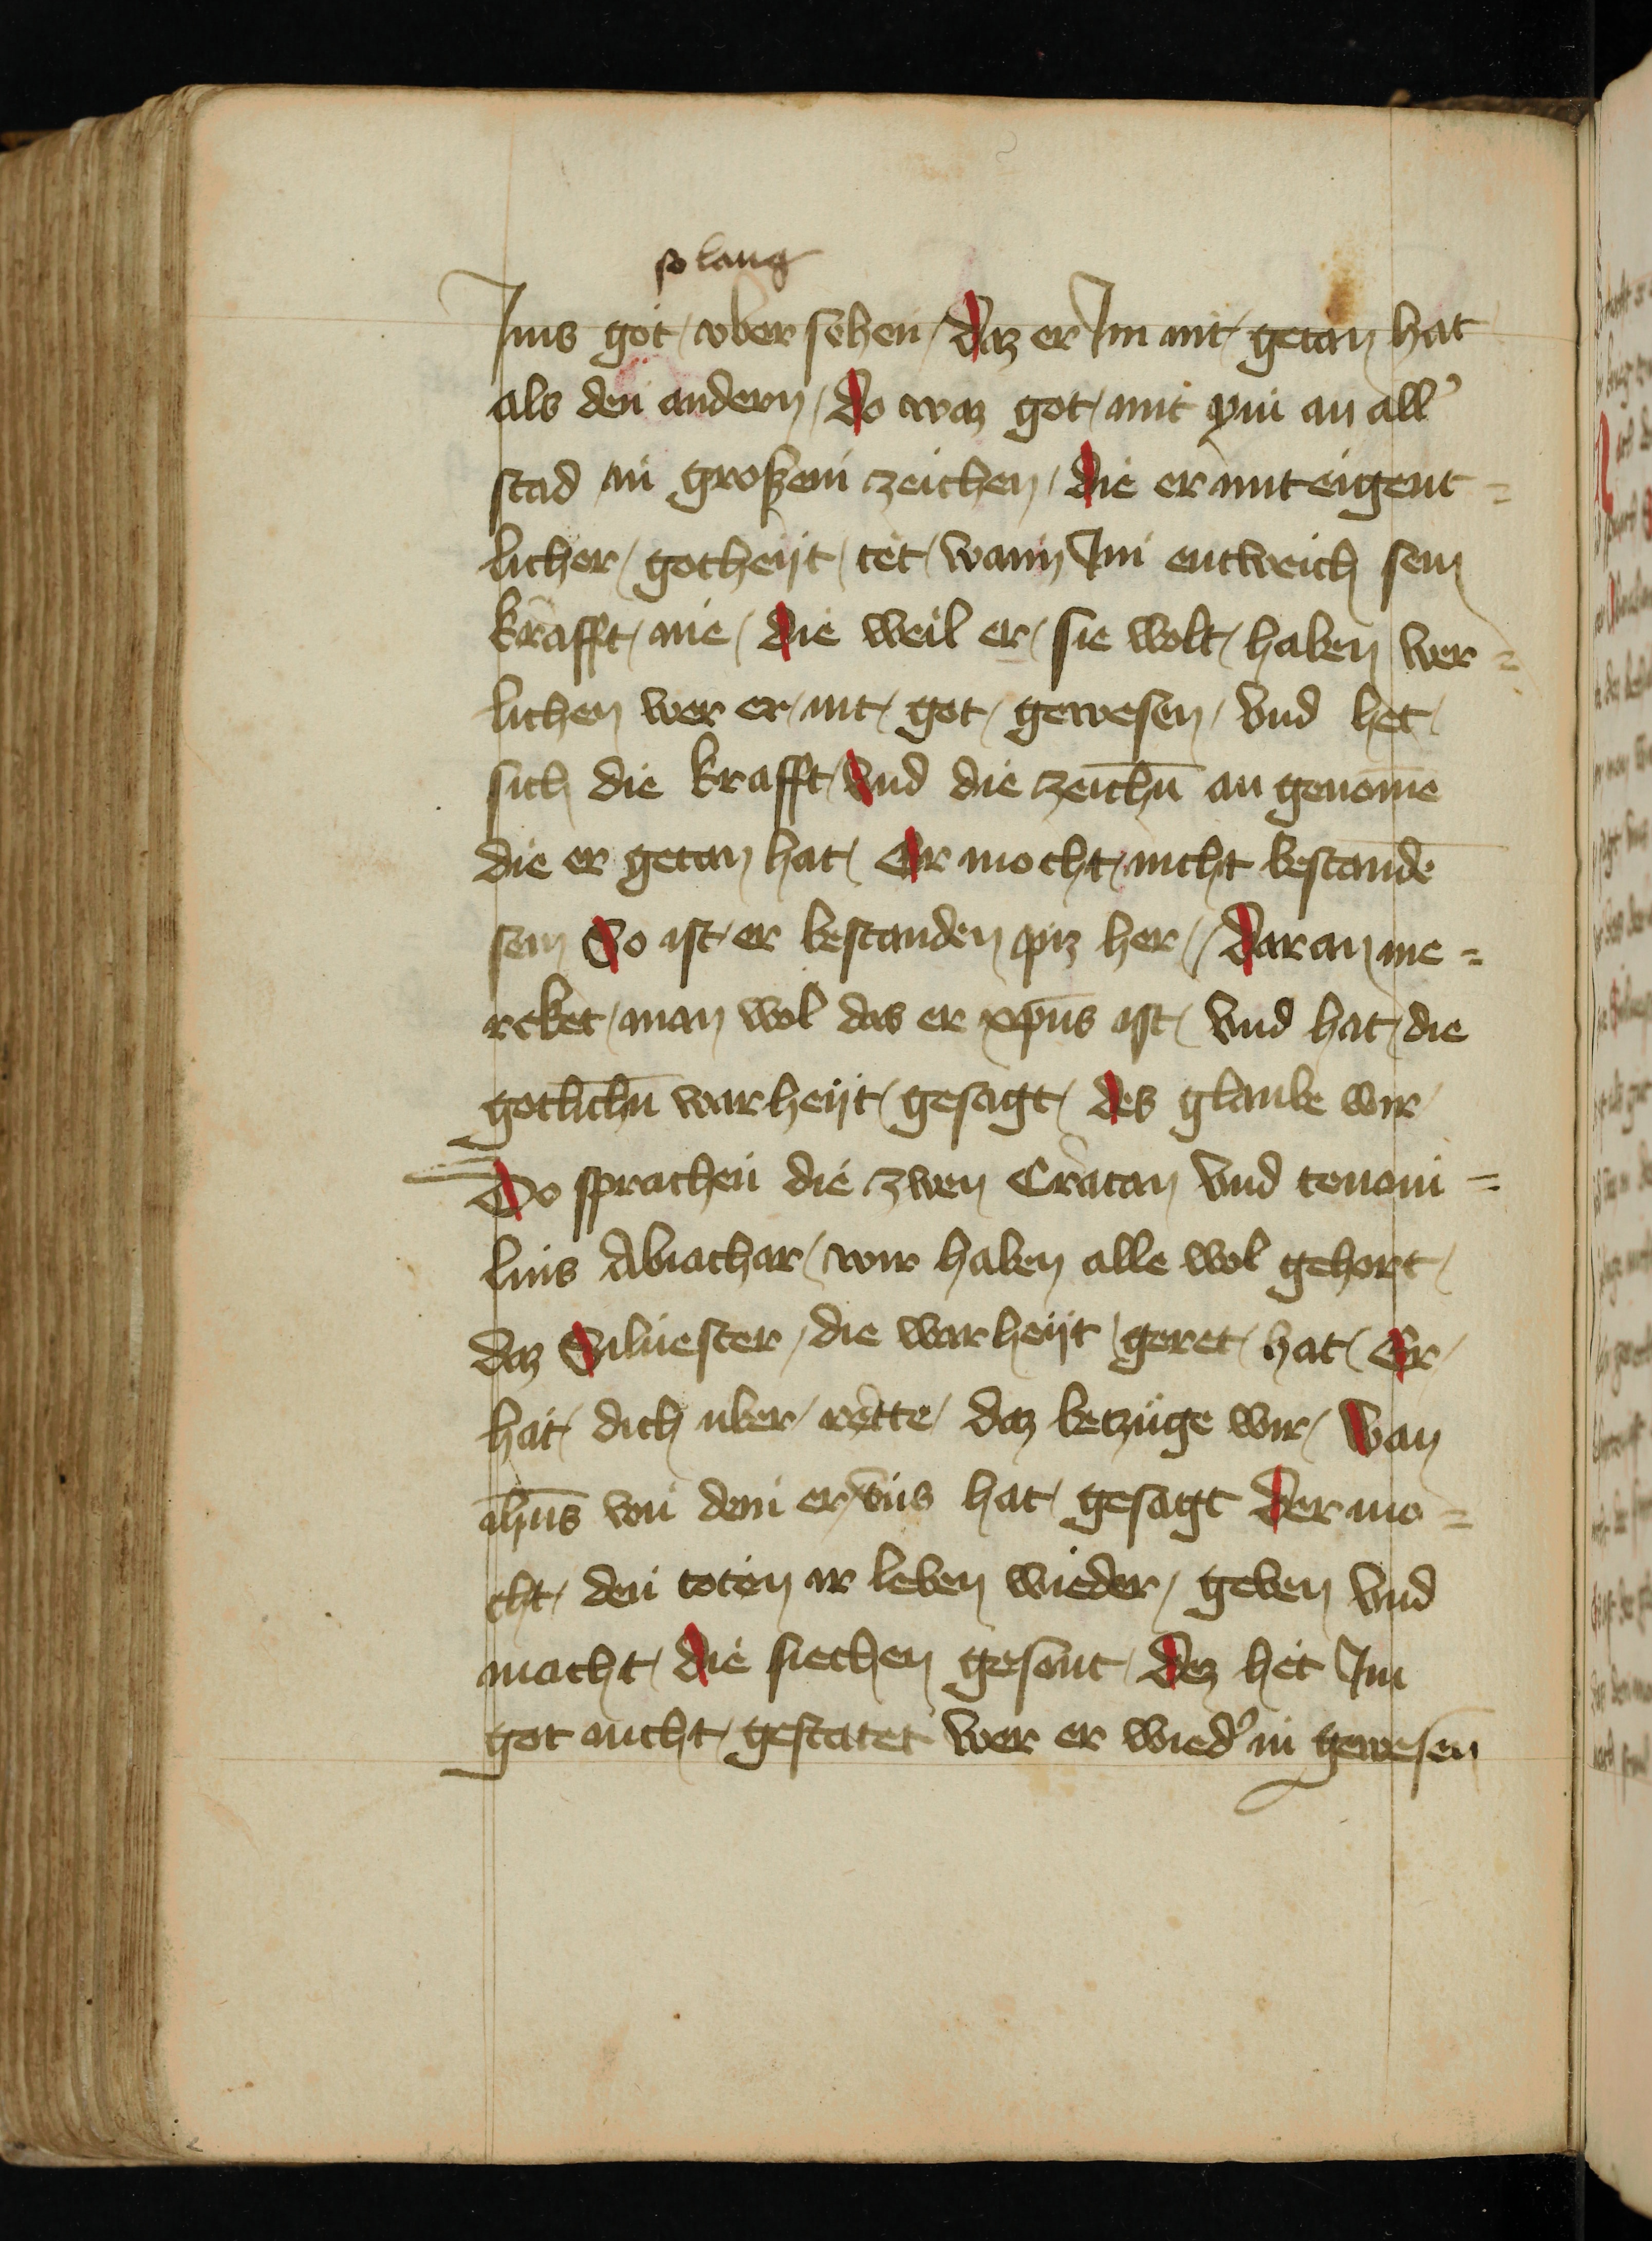 so lang
Ims got / vber sehen / Daz er Im nit / getan hat
als den andern / Do waz got / mit ym an all'
stad in großem zeichen / die er mit eigent=
licher / gotheyt / tet / wann Im entweich sein
krafft / nie / die weil er / sie wolt / haben wer=
lichen wer er / nit / got / gewesen / vnd het /
sich die krafft / Vnd die zeichn̄ an genome̅
die er getan hat / Er mocht / nicht bestande̅
sein So ist / er bestanden piz her // Dar an me=
rcket / man wol das er xp̄us ist / vnd hat / die
gotlichn̄ warheyt / gesagt / des glaube wir /
Do sprachen die zwen Craton vnd tenom=
lius Abiachar / wir haben alle wol gehort /
daz Siluester / die warheyt / geret / hat / Er /
hat / dich uber / rette / daz betzüge wir / Wan
ih̄us von dem er vns hat / gesagt Der mo=
cht / den toten ir leben wieder / geben vnd
macht / die siechen gesunt / Dez het Im
got nicht / gestatet wer er wied' in gewesen